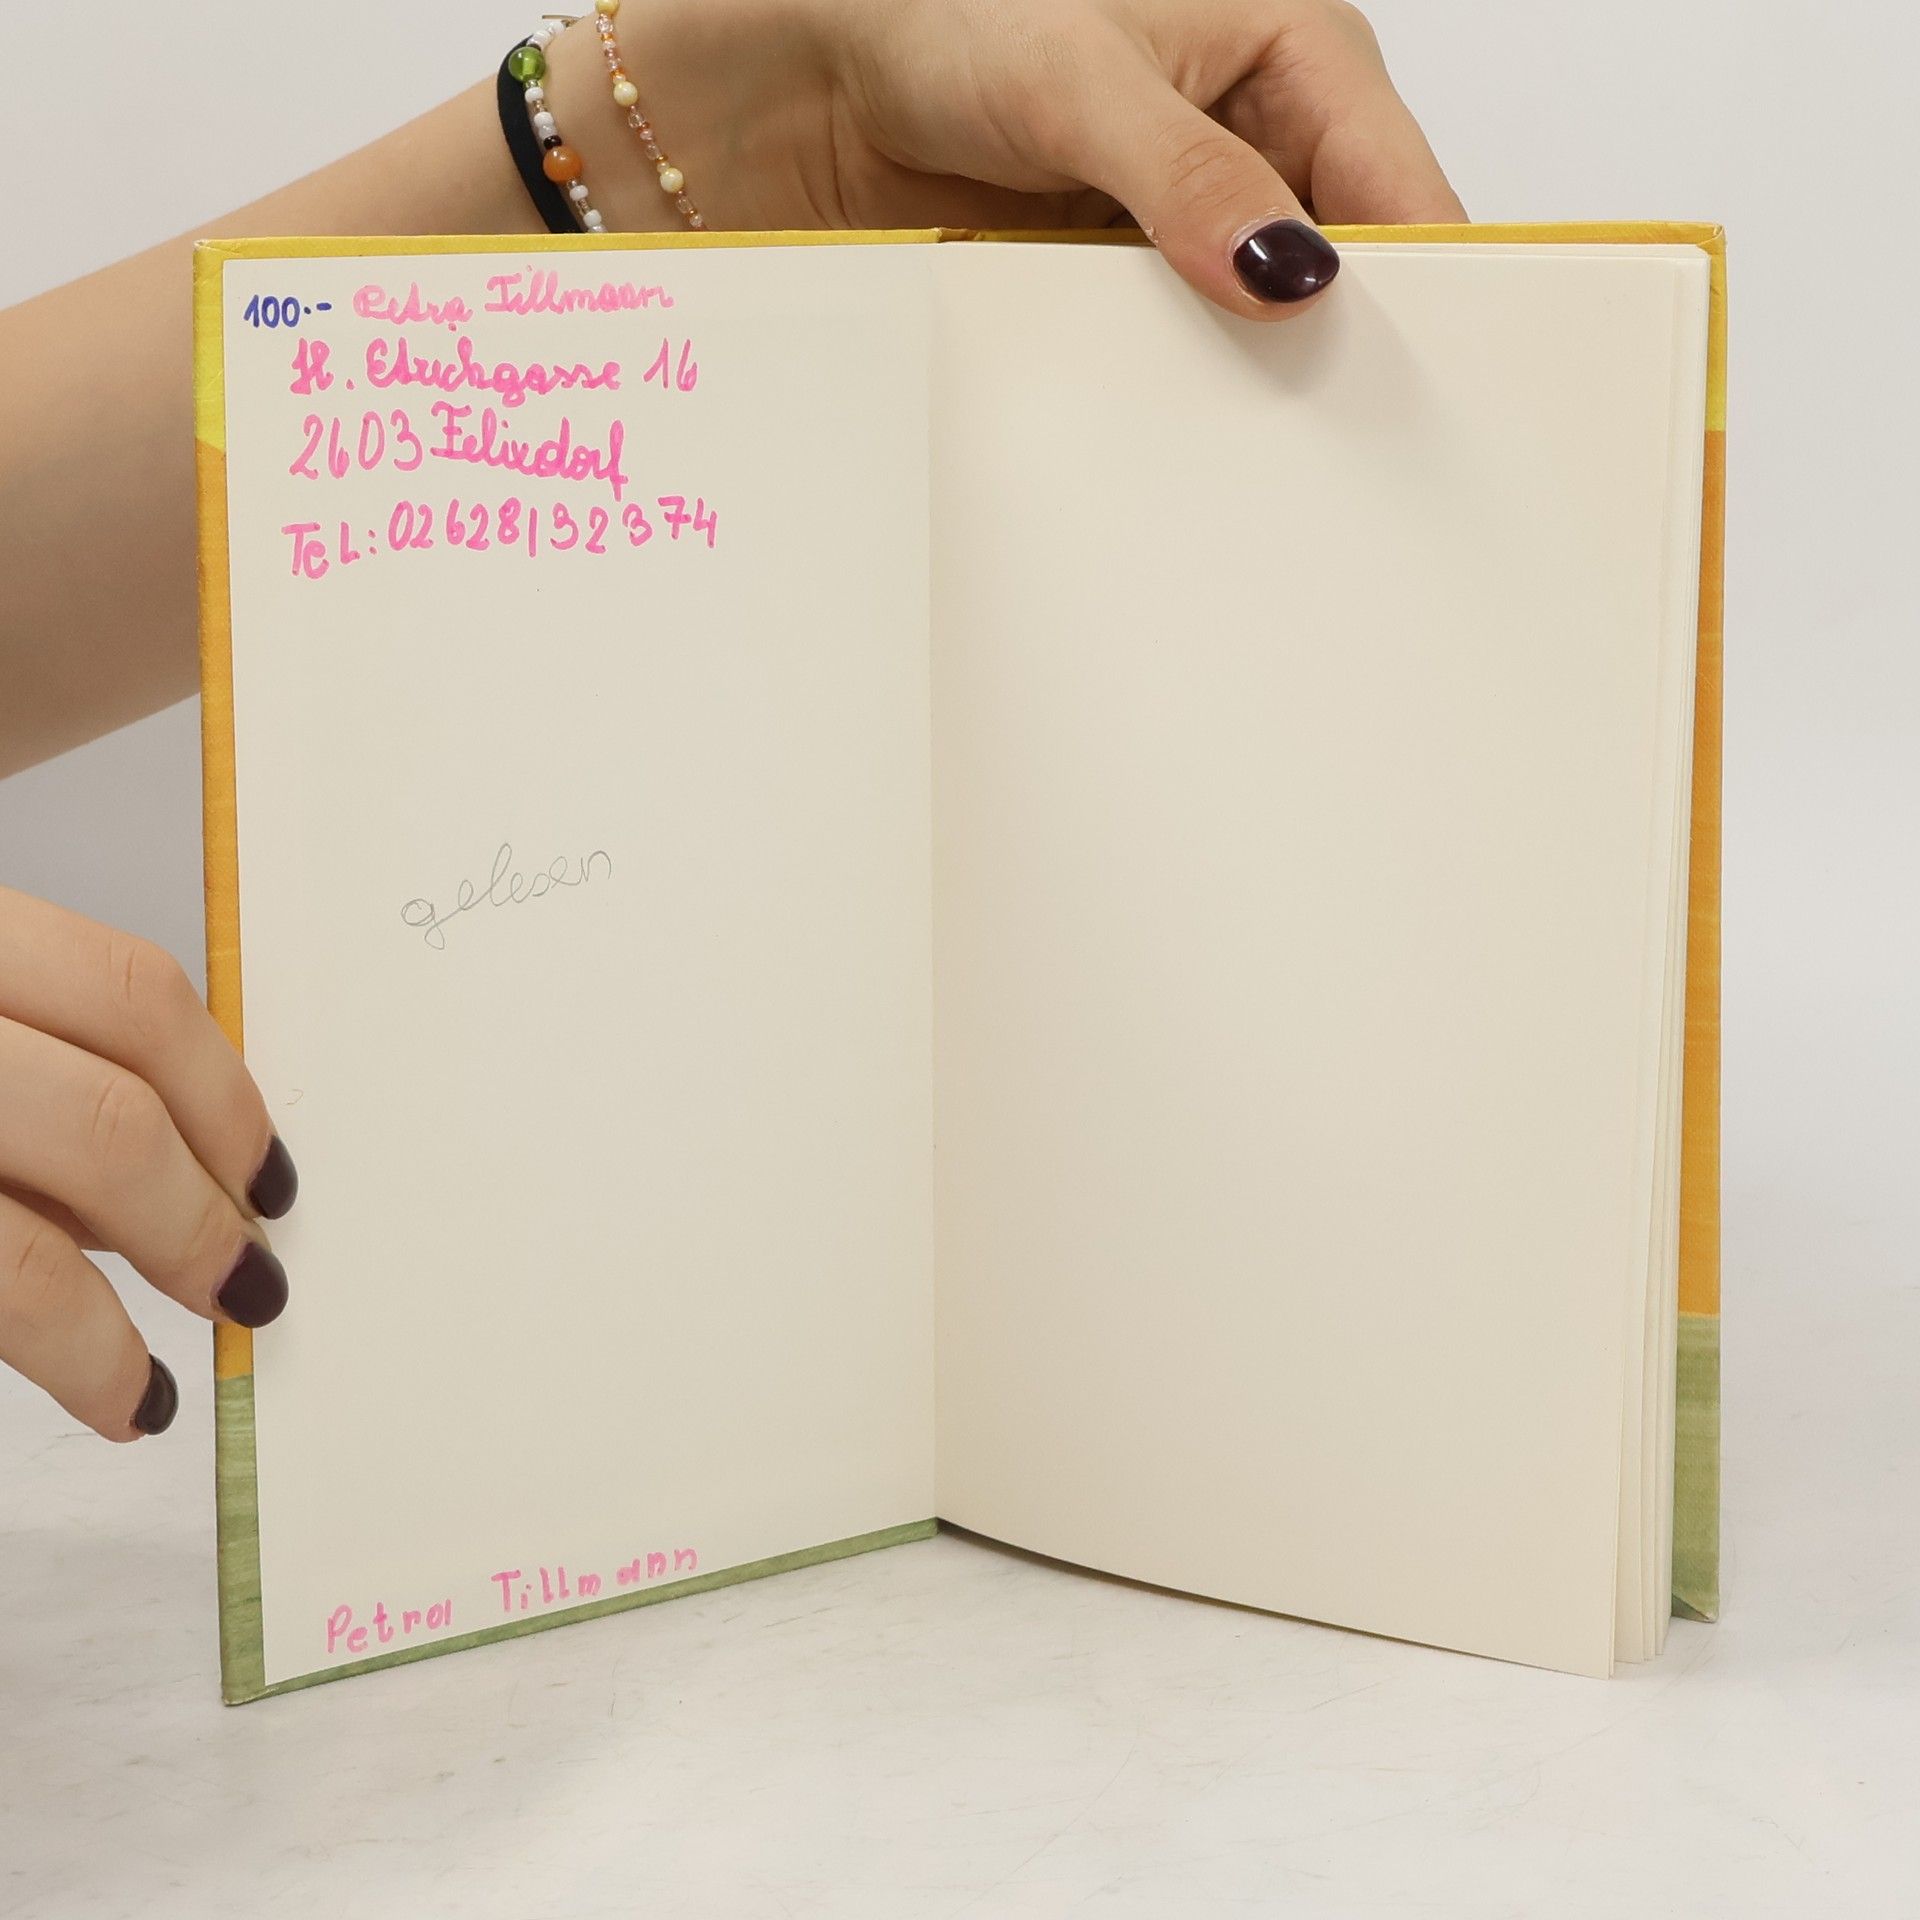 100.- Petra Tillmann
H. Etrichgasse 16
2603 Felixdorf
TeL: 02628/32374
gelesen
Petra Tillmann